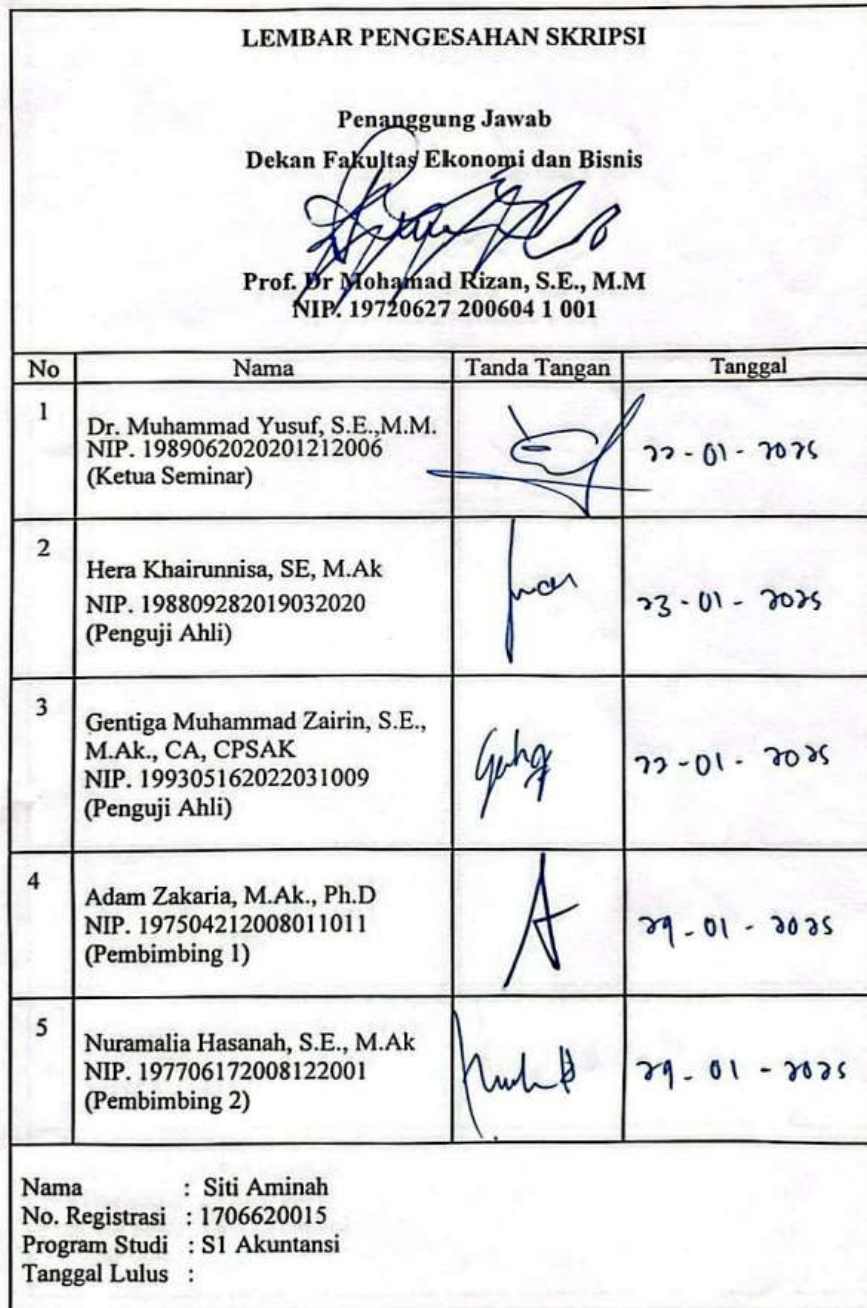 LEMBAR PENGESAHAN SKRIPSI
Penanggung Jawab
Dekan Fakultas Ekonomi dan Bisnis
Prof. Dr Mohamad Rizan, S.E., M.M
NIP. 19720627 200604 1 001
No Nama Tanda Tangan Tanggal
1 Dr. Muhammad Yusuf, S.E.,M.M.
NIP. 1989062020201212006
(Ketua Seminar)
22-01-2025
2 Hera Khairunnisa, SE, M.Ak
NIP. 198809282019032020
(Penguji Ahli)
23-01-2025
3 Gentiga Muhammad Zairin, S.E.,
M.Ak., CA, CPSAK
NIP. 199305162022031009
(Penguji Ahli)
22-01-2025
4 Adam Zakaria, M.Ak., Ph.D
NIP. 197504212008011011
(Pembimbing 1)
29-01-2025
5 Nuramalia Hasanah, S.E., M.Ak
NIP. 197706172008122001
(Pembimbing 2)
29-01-2025
Nama : Siti Aminah
No. Registrasi : 1706620015
Program Studi : S1 Akuntansi
Tanggal Lulus :